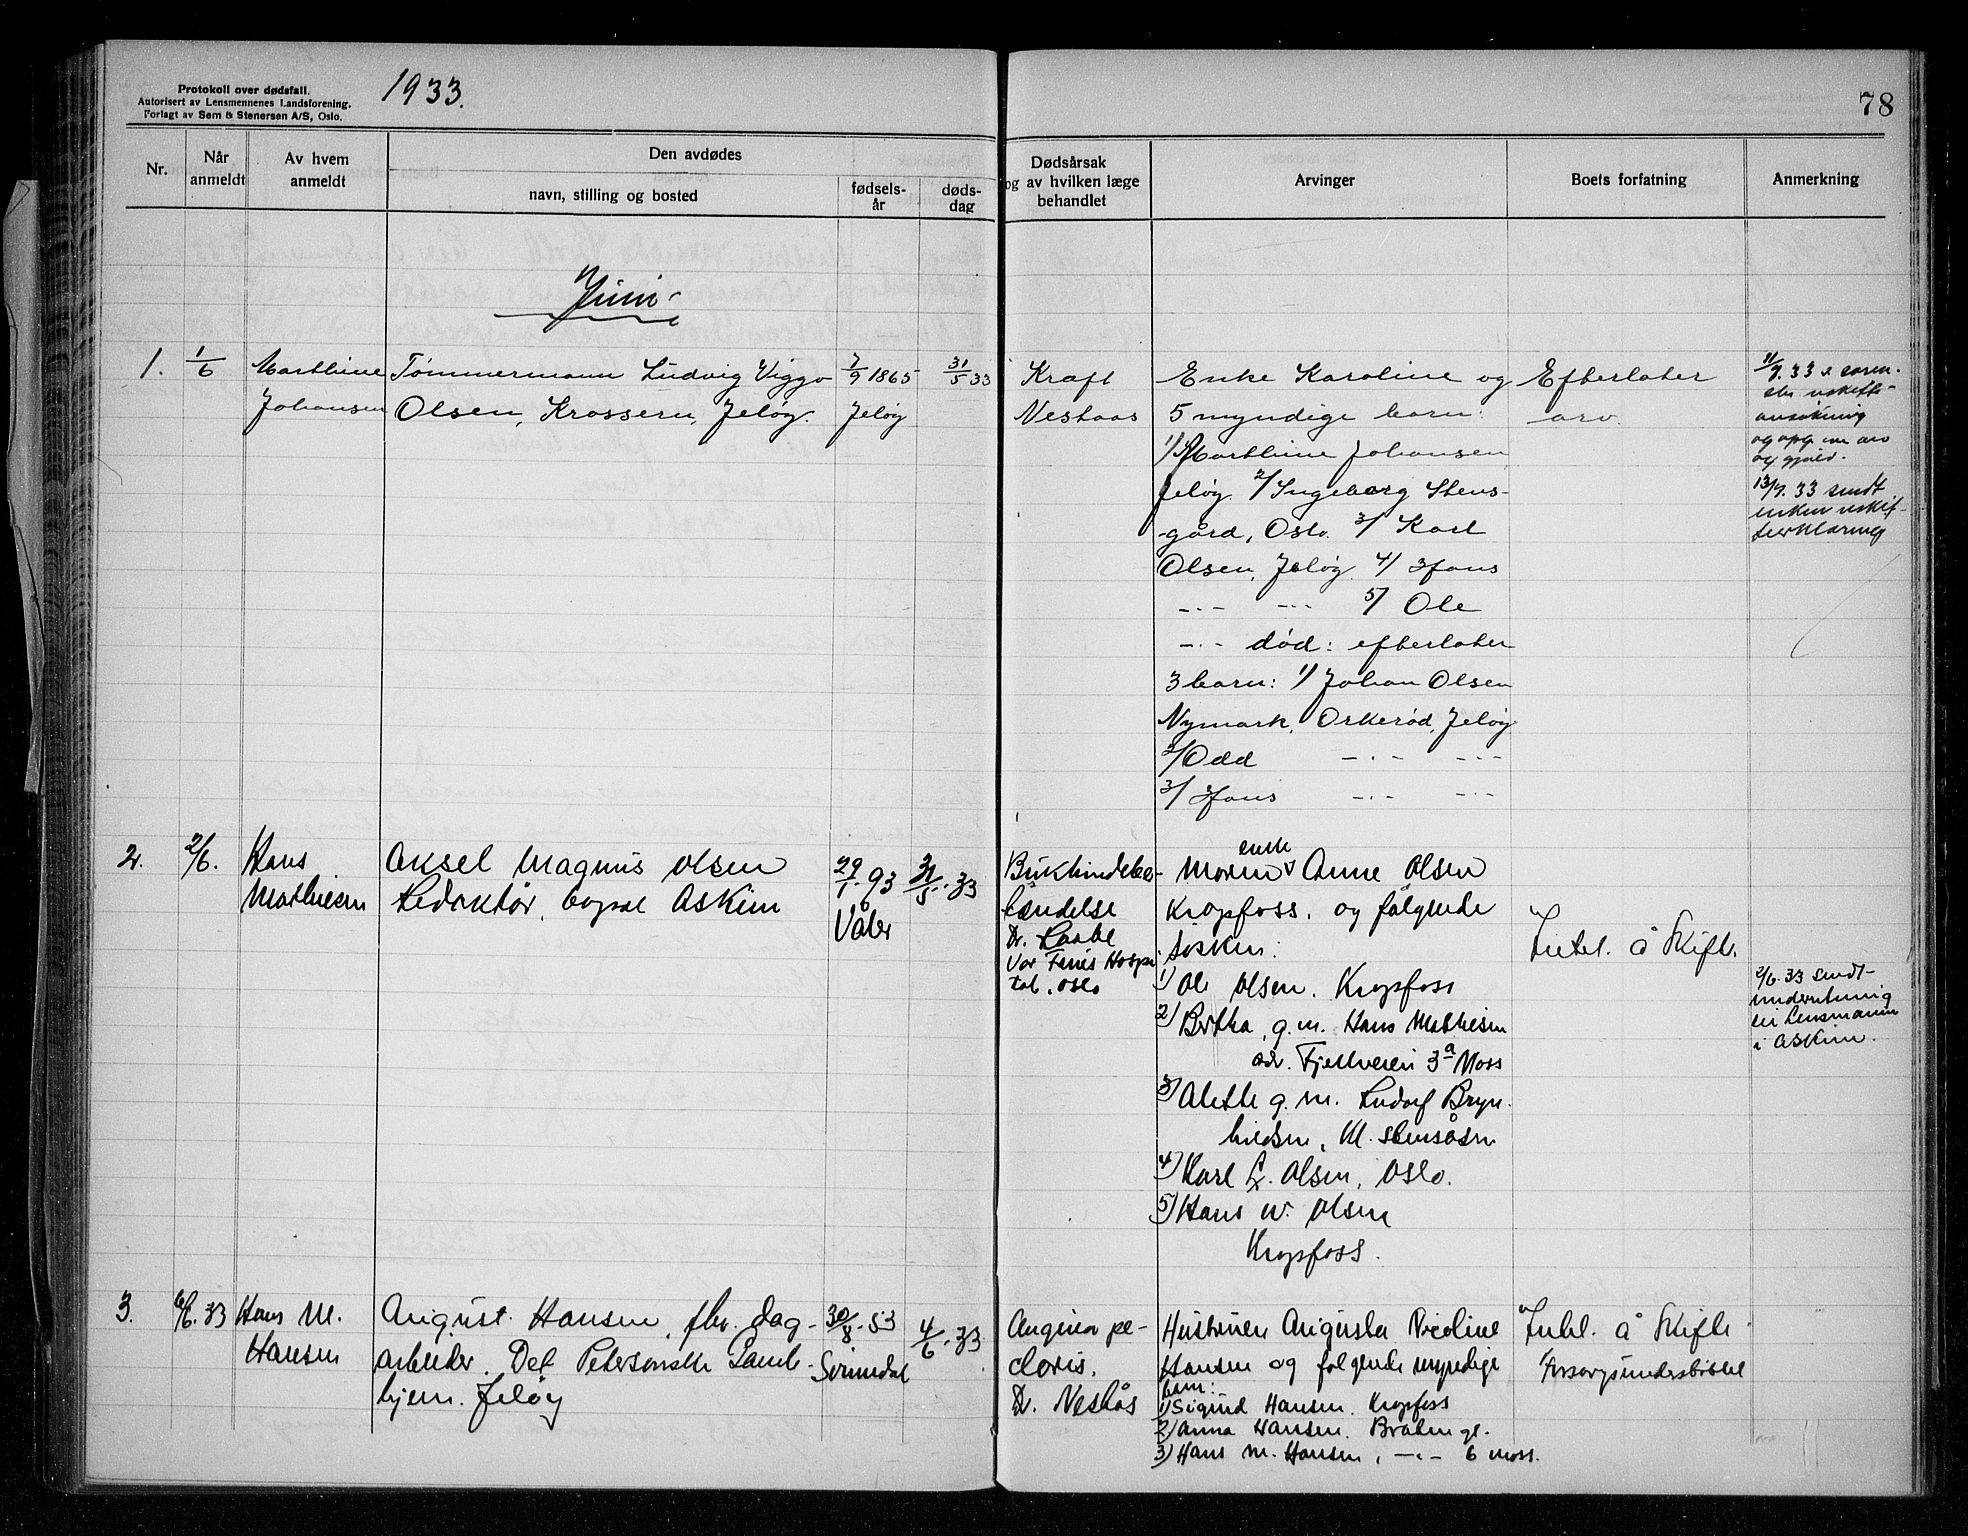 Protokoll over dødsfall.
Autorisert av Lensmennenes Landsforening.
Forlagt av Sem & Stenersen A/S, Oslo.
1933.
78
Nr.
Når anmeldt
Av hvem anmeldt
Den avdødes
navn, stilling og bosted
fødsels-år
døds-dag
Dødsårsak og av hvilken læge behandlet
Arvinger
Boets forfatning
Anmerkning
Juni
1.
1/6
Marthine
Johansen
Tømmermann Ludvig Viggo
Olsen, Krossern, Jeløy.
7/9 1865
Jeløy
31/5 33
Kraft
Nestaas
Enke Karoline og
5 myndige barn:
1/ Marthine Johansen
Jeløy. 2/ Ingeborg Stens-
gård, Oslo. 3/ Karl
Olsen, Jeløy. 4/ Hans
-·- -·- 5/ Ole
-·- død: efterlater
3 barn: 1/ Johan Olsen
Nymark, Orkerød, Jeløy
2/ Odd -·- -·-
3/ Hans -·- -·-
Efterlater
arv.
11/9. 33
ansökning
og opg. om arv
og gjæld.
13/9. 33 sendt
enken uskif-
teerklæring
2.
2/6.
Hans
Mathiesen
Aksel Magnus Olsen
Redaktør, bopæl Askim
29/1. 93
Våler
31/5. 33
Bukhindebe-
tændelse
Dr. Raabe
Vor Frues Hospi
tal. Oslo
Moren enke Anne Olsen
Kropfoss, og følgende
søsken:
1) Ole Olsen. Kropfoss
2) Bertha, g.m. Hans Mathiesen
adr. Fjellveien 3a Moss
3) Alette g.m. Ludolf Bryn-
hildsen, M. Stensåsen
4) Karl L. Olsen, Oslo.
5) Hans W. Olsen
Kropfoss.
Intet å Skifte.
2/6. 33 sendt
underretning
til Lensmannen
i Askim.
3.
6/6. 33
Hans M.
Hansen
August Hansen, fhv. dag-
arbeider. Det Petersonske Gamle-
hjem. Jeløy
30/8. 53
Svinndal
4/6. 33
Angina pe-
ctoris.
Dr. Nestås
Hustruen Augusta Nicoline
Hansen og følgende myndige
barn:
1) Sigurd Hansen. Kropfoss
2) Anna Hansen. Bråten gt.
3) Hans M. Hansen, -·- 6 Moss.
Intet å Skifte
Forsorgsunderstøttet